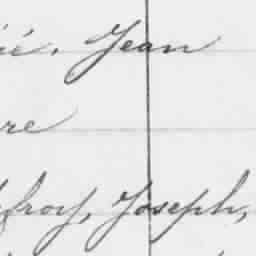 ié. Jean
re
froy, Joseph,